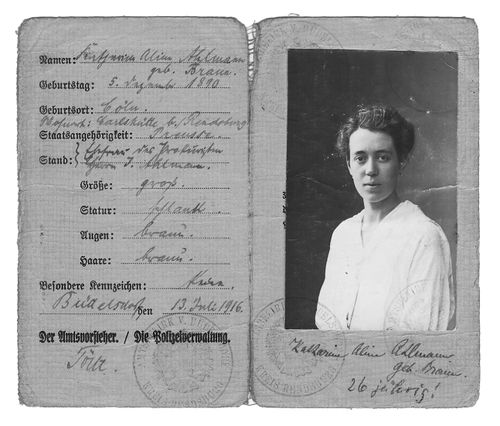 Namen: Katharina Aline Ahlmann
geb. Braun.
Geburtstag: 5. Dezember 1890
Geburtsort: Cöln.
Wohnort: Carlshütte b. Rendsburg
Staatsangehörigkeit: Preusse
Stand: Ehefrau des Prokuristen
Herrn J. Ahlmann.
Größe: groß.
Statur: schlank
Augen: braun.
Haare: braun.
Besondere Kennzeichen: Keine.
Büdelsdorf den 13. Juli 1916.
Der Amtsvorsteher. / Die Polizeiverwaltung.
Katharina Aline Ahlmann
geb. Braun.
26 jährig!